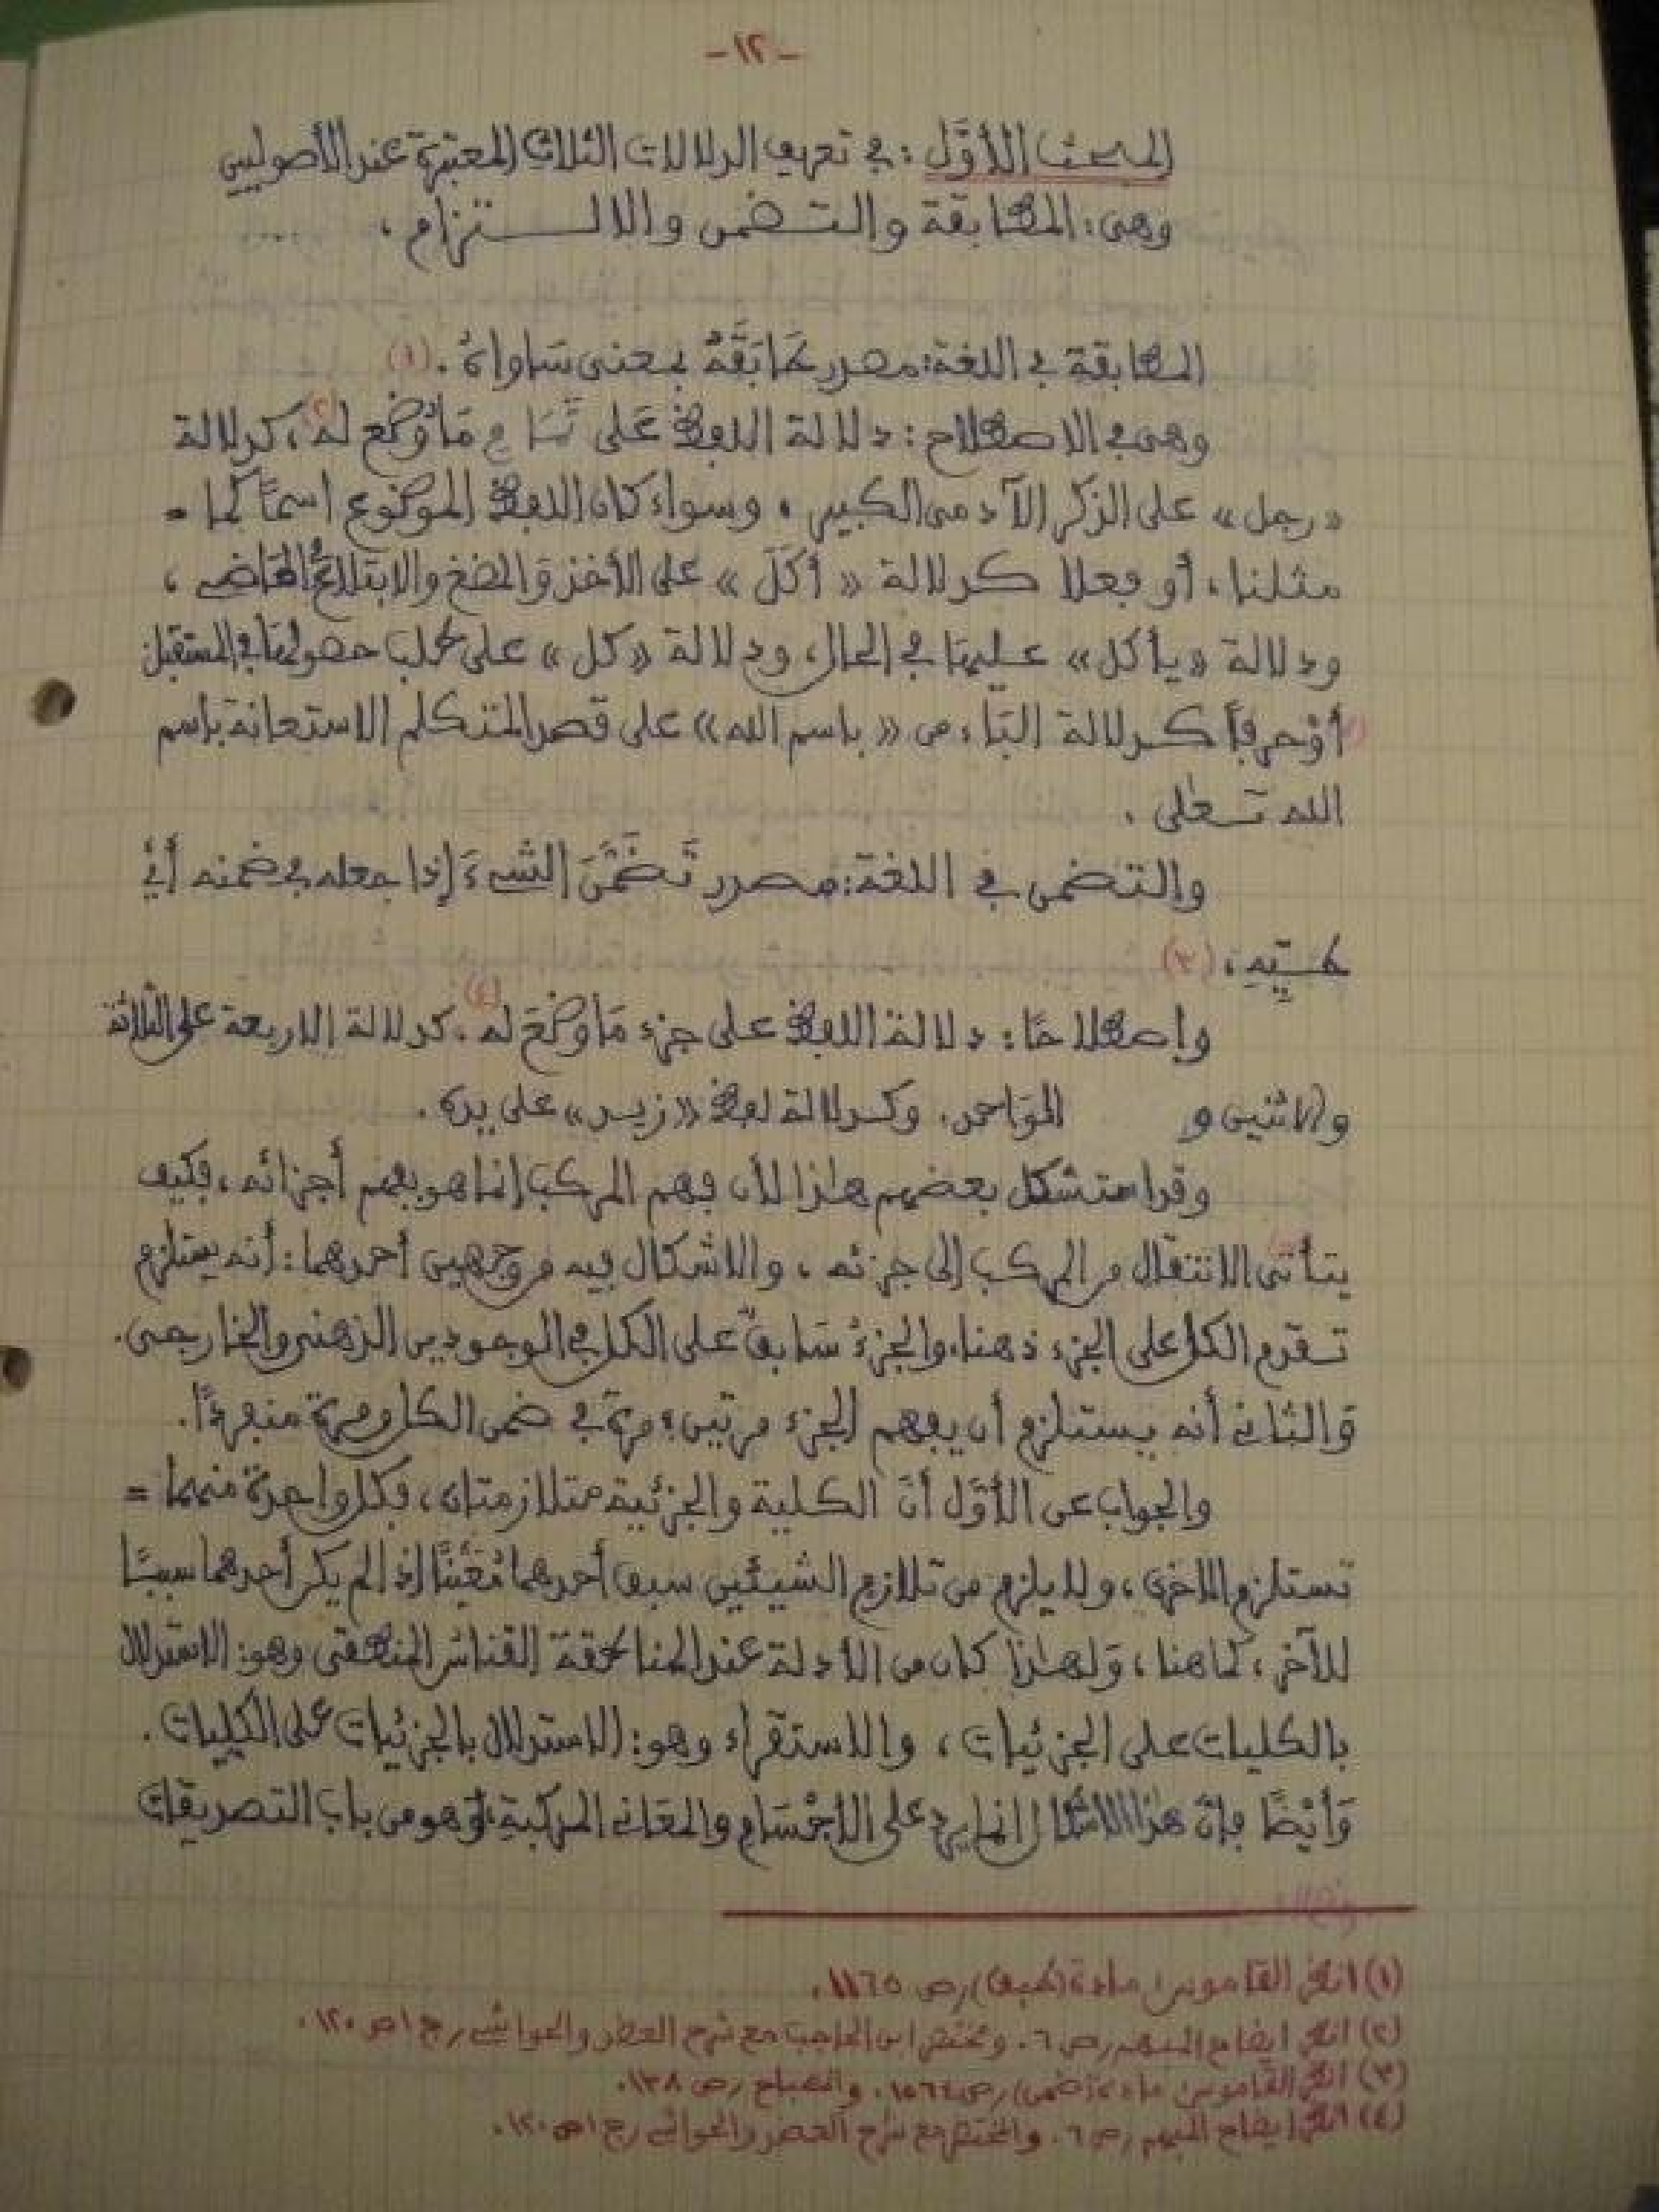 -١٢-
المبحث الأوَّل: في تعريف الدلالات الثلاث المعتبرة عند الأصوليين
وهى: المطابقة والتضمن والالتزام،
المطابقة في اللغة: مصدر طَابَقَهُ بمعنى سَاواهُ. (١)
وهى في الاصطلاح: دلالة اللفظ عَلى تَمَام مَا وُضع له (٢)، كدلالة
«رجل» على الذكر الآدمى الكبير، وسواء كان اللفظ الموضوع اسمًا كما =
مثلنا، أو فعلا كدلالة «أكَلَ» على الأخذ وَالمضغ والابتلاع في الماضى،
ودلالة «يأكل» عليها في الحال، ودلالة «كل» على طلب حصولها في المستقبل
أوْ حرفاً كدلالة البَاء من «باسم الله» على قصد المتكلم الاستعانة باسم
الله تعلى.
والتضمن في اللغة: مصدر تَضَمَّنَ الشىءَ إذا جعله في ضمنه أيْ
طَيِّهِ، (٣)
واصطلاحًا: دلالة اللفظ على جزء مَا وُضعَ له (٤). كدلالة الاربعة على الثلاثة
والاثنين و الوَاحد. وكدلالة لفظ «زيد» على يده.
وقد استشكل بعضهم هـٰذا لأن فهم المركب إنما هو بفهم أجزائه، فكيف
يتأتى الانتقال من المركب إلى جزئه، والاشكال فيه من وجهين أحدهما: أنه يستلزم
تقدم الكل على الجزء ذهنا، والجزءُ سَابقٌ على الكل في الوجودين الذهنى والخارجى.
وَالثانى أنه يستلزم أن يفهم الجزء مرتين؛ مرة في ضمن الكل ومرة منفردًا.
والجواب عن الأوَّل أنَّ الكلية والجزئية متلازمتان، فكل واحدة منهما =
تستلزم الاخرى، ولا يلزم من تلازم الشيئين سبق أحدهما مُعَيَّنًا إذا لم يكن أحدهما سببًا
للآخر، كما هنا، وَلهـٰذا كان من الأدلة عند المناطقة القياس المنطقى وهو: الاستدلال
بالكليات على الجزئيات، والاستقراء وهو: الاستدلال بالجزئيات على الكليات.
وَأيْضًا فإنَّ هذا الاشكال إنما يرد على الأجْسَام والمعَانى المركبة، وَهو من باب التصديقات
(١) انظر القاموس، مادة (طبق) رص ١١٦٥.
(٢) انظر ايضاح المبهم رص ٦. ومختصر ابن الحاجب مع شرح العضد والحواشى رج ١ ص ١٢٠.
(٣) انظر القاموس، مادة (ضمن) رص ١٥٦٤. والمصباح رص ١٣٨.
(٤) انظر ايضاح المبهم رص ٦. والمختصر مع شرح العضد والحواشى رج ١ ص ١٢٠.